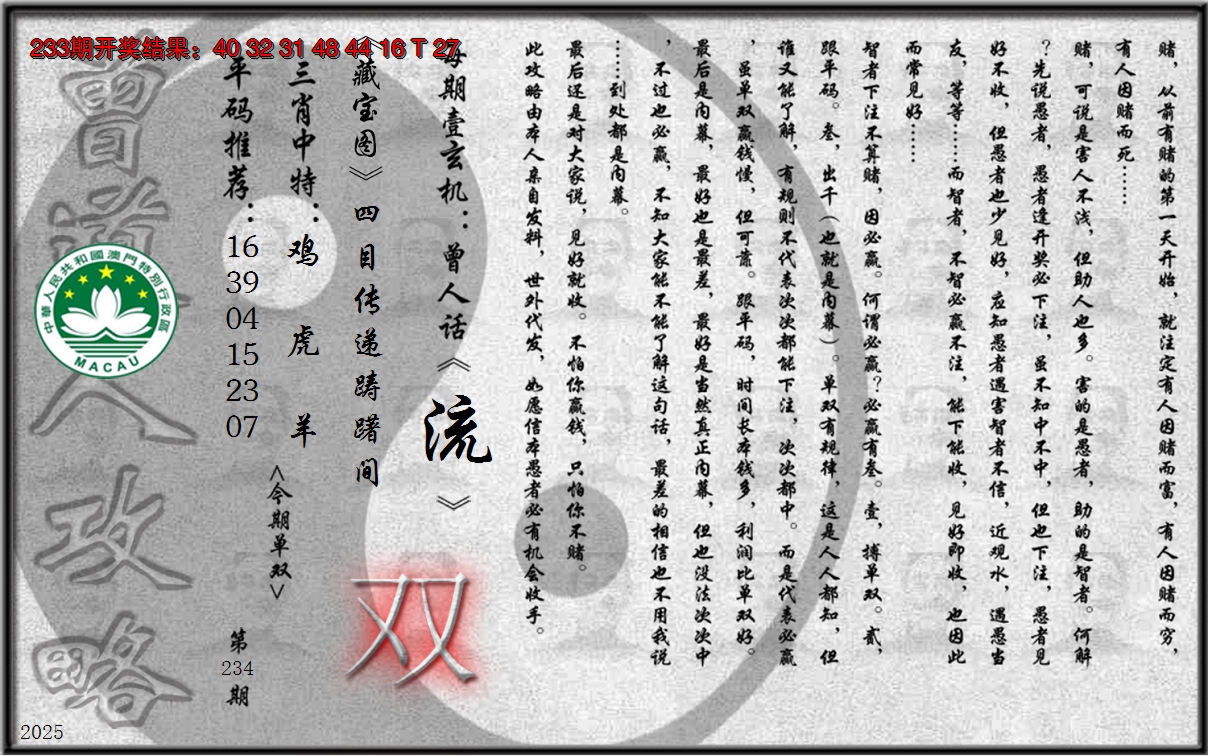 233期开奖结果：40 32 31 48 44 16 T 27
赌，从前有赌的第一天开始，就注定有人因赌而富，有人因赌而穷，
有人因赌而死……
赌，可说是害人不浅，但助人也多。害的是愚者，助的是智者。何解
？先说愚者，愚者逢开奖必下注，虽不知中不中，但也下注，愚者见
好不收，但愚者也少见好，应知愚者遇害智者不信，近观水，遇愚当
友，等等……而智者，不智必赢不注，能下能收，见好即收，也因此
而常见好……
智者下注不算赌，因必赢。何谓必赢？必赢有叁。壹，搏单双。贰，
跟平码。叁，出千（也就是内幕）。单双有规律，这是人人都知，但
谁又能了解，有规则不代表次次都能下注，次次都中。而是代表必赢
，虽单双赢钱慢，但可靠。跟平码，时间长本钱多，利润比单双好。
最后是内幕，最好也是最差，最好是当然真正内幕，但也没法次次中
，不过也必赢，不知大家能不能了解这句话，最差的相信也不用我说
……到处都是内幕。
最后还是对大家说，见好就收。不怕你赢钱，只怕你不赌。
此攻略由本人亲自发料，世外代发，如愿信本愚者必有机会收手。
每期壹玄机：曾人话《流》
《藏宝图》四目传递踌躇间
双
三肖中特：鸡 虎 羊
<今期单双>
平码推荐：
16
39
04
15
23
07
第
234
期
曾道人攻略
中華人民共和國澳門特別行政區
MACAU
2025